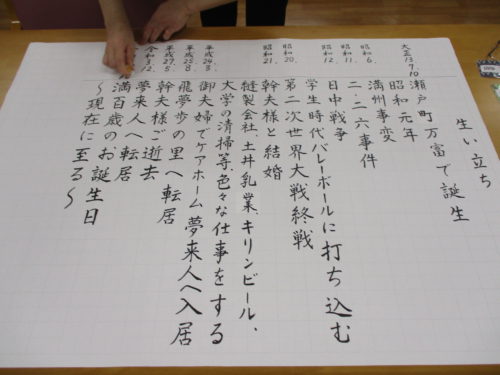 生い立ち
大正13.7.10 瀬戸町万富で誕生
昭和元年
昭和6. 満州事変
昭和11. 二.二六事件
昭和12. 日中戦争
学生時代バレーボールに打ち込む
昭和20. 第二次世界大戦終戦
昭和21. 幹夫様と結婚
縫製会社、土井乳業、キリンビール、
大学の清掃等、色々な仕事をする
平成24.8. 御夫婦でケアホーム夢来人へ入居
平成25.8. 龍夢歩の里へ転居
平成27.5. 幹夫様ご逝去
令和3.12. 夢来人へ転居
満百歳のお誕生日
〜現在に至る〜